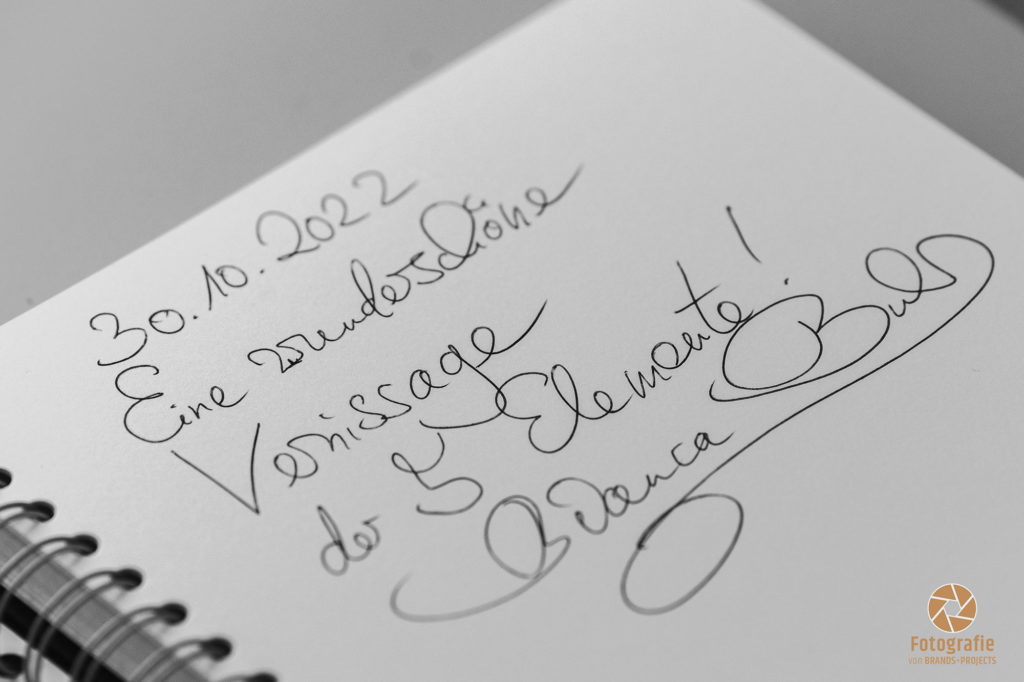 30.10.2022
Eine wunderschöne
Vernissage
der 5 Elemente!
Bianca
Fotografie
von BRANDS-PROJECTS